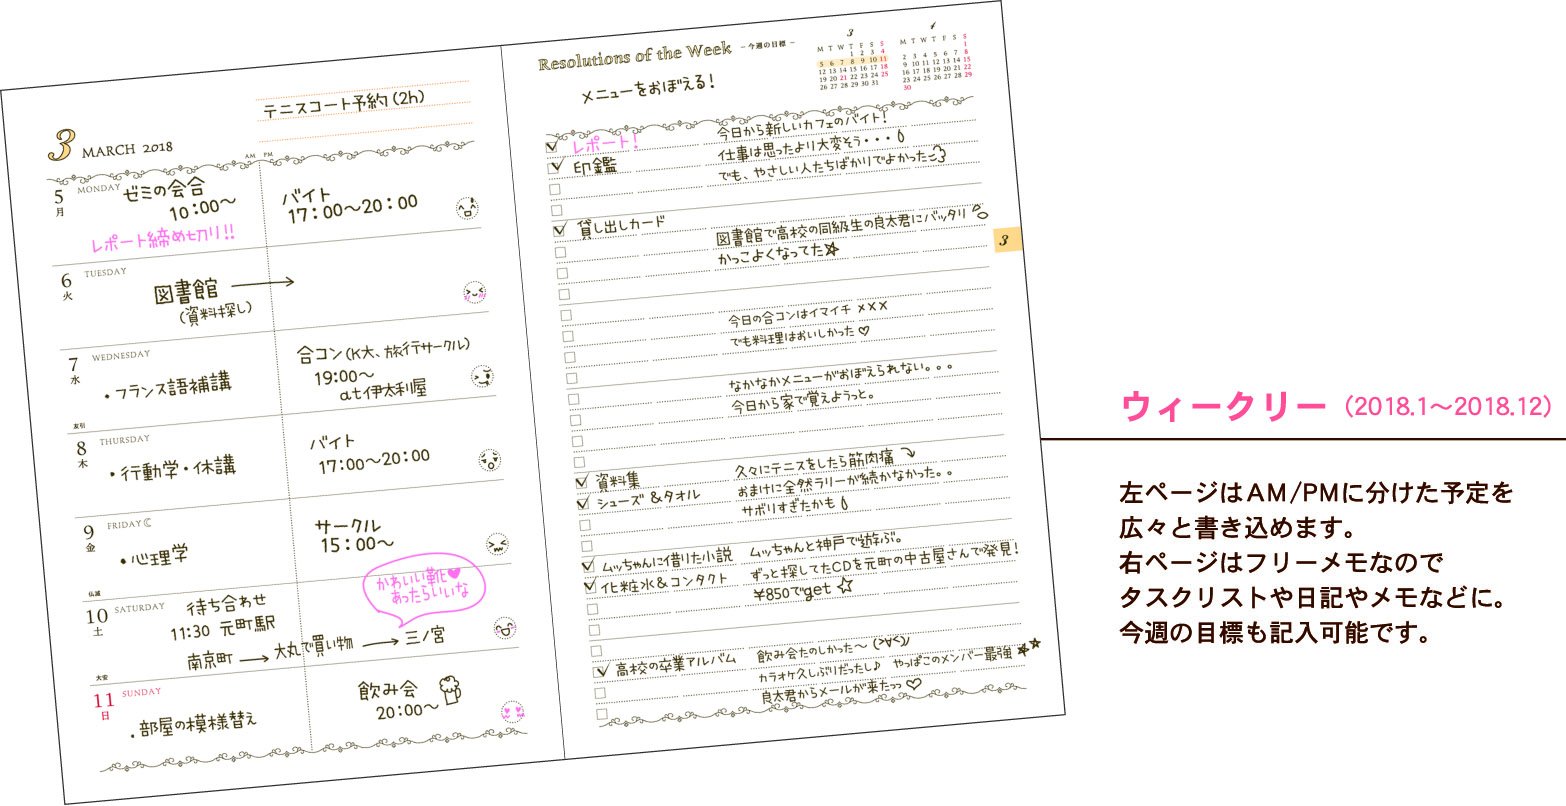 テニスコート予約(2h)
3 MARCH 2018
AM PM
5 MONDAY 月
ゼミの会合
10:00〜
レポート締め切り!!
バイト
17:00〜20:00
6 TUESDAY 火
図書館
(資料探し)
7 WEDNESDAY 水
・フランス語補講
合コン(K大、旅行サークル)
19:00〜
at伊太利屋
友引
8 THURSDAY 木
・行動学・休講
バイト
17:00〜20:00
9 FRIDAY 金
・心理学
サークル
15:00〜
仏滅
10 SATURDAY 土
待ち合わせ
11:30 元町駅
南京町→大丸で買い物→三ノ宮
かわいい靴♥
あったらいいな
大安
11 SUNDAY 日
・部屋の模様替え
飲み会
20:00〜
Resolutions of the Week −今週の目標−
メニューをおぼえる!
3
M T W T F S S
1 2 3 4
5 6 7 8 9 10 11
12 13 14 15 16 17 18
19 20 21 22 23 24 25
26 27 28 29 30 31
4
M T W T F S S
1
2 3 4 5 6 7 8
9 10 11 12 13 14 15
16 17 18 19 20 21 22
23 24 25 26 27 28 29
30
レポート!
今日から新しいカフェのバイト!
印鑑
仕事は思ったより大変そう・・・
でも、やさしい人たちばかりでよかった
貸し出しカード
図書館で高校の同級生の良太君にバッタリ
かっこよくなってた☆
3
今日の合コンはイマイチ ×××
でも料理はおいしかった♡
なかなかメニューがおぼえられない。。。
今日から家で覚えようっと。
資料集
久々にテニスをしたら筋肉痛
シューズ&タオル
おまけに全然ラリーが続かなかった。。
サボリすぎたかも
ムッちゃんに借りた小説
ムッちゃんと神戸で遊ぶ。
化粧水&コンタクト
ずっと探してたCDを元町の中古屋さんで発見!
¥850でget ☆
高校の卒業アルバム
飲み会たのしかった〜(>∀<)ノ
カラオケ久しぶりだったし♪ やっぱこのメンバー最強★☆
良太君からメールが来たっ♡
ウィークリー(2018.1〜2018.12)
左ページはAM/PMに分けた予定を
広々と書き込めます。
右ページはフリーメモなので
タスクリストや日記やメモなどに。
今週の目標も記入可能です。